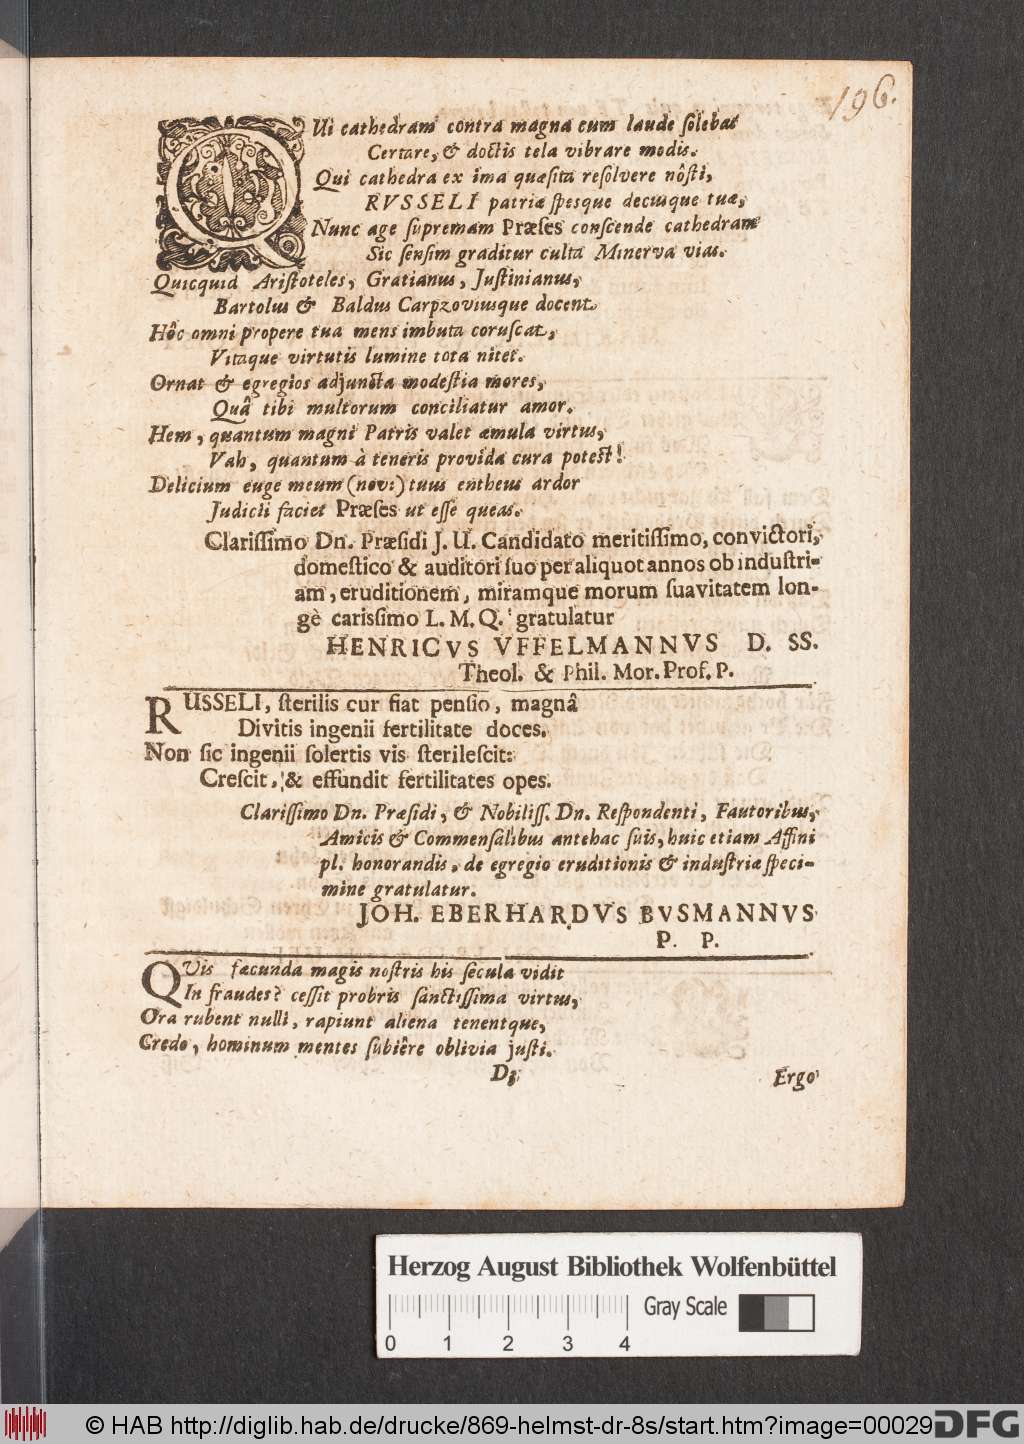 196.
QUi cathedram contra magna cum laude solebas
Certare, & doctis tela vibrare modis.
Qui cathedra ex ima quæsita resolvere nôsti,
RVSSELI patriæ spesque decusque tuæ,
Nunc age supremam Præses conscende cathedram
Sic sensim graditur culta Minerva vias.
Quicquid Aristoteles, Gratianus, Justinianus,
Bartolus & Baldus Carpzoviusque docent,
Hôc omni propere tua mens imbuta coruscat,
Vitaque virtutis lumine tota nitet.
Ornat & egregios adjuncta modestia mores,
Quâ tibi multorum conciliatur amor.
Hem, quantum magni Patris valet æmula virtus,
Vah, quantum à teneris provida cura potest!
Delicium euge meum (novi) tuus entheus ardor
Judicii faciet Præses ut esse queas.
Clarissimo Dn. Præsidi J. U. Candidato meritissimo, convictori,
domestico & auditori suo per aliquot annos ob industri-
am, eruditionem, miramque morum suavitatem lon-
gè carissimo L. M. Q. gratulatur
HENRICVS VFFELMANNVS D. SS.
Theol. & Phil. Mor. Prof. P.
RUSSELI, sterilis cur fiat pensio, magnâ
Divitis ingenii fertilitate doces.
Non sic ingenii solertis vis sterilescit:
Crescit, & effundit fertilitates opes.
Clarissimo Dn. Præsidi, & Nobiliss. Dn. Respondenti, Fautoribus,
Amicis & Commensalibus antehac suis, huic etiam Affini
pl. honorandis, de egregio eruditionis & industriæ speci-
mine gratulatur.
JOH. EBERHARDVS BVSMANNVS
P. P.
QVis fæcunda magis nostris his secula vidit
In fraudes? cessit probris sanctissima virtus,
Ora rubent nulli, rapiunt aliena tenentque,
Credo, hominum mentes subiêre oblivia justi.
D3
Ergo
Herzog August Bibliothek Wolfenbüttel
Gray Scale
0 1 2 3 4
© HAB http://diglib.hab.de/drucke/869-helmst-dr-8s/start.htm?image=00029
DFG